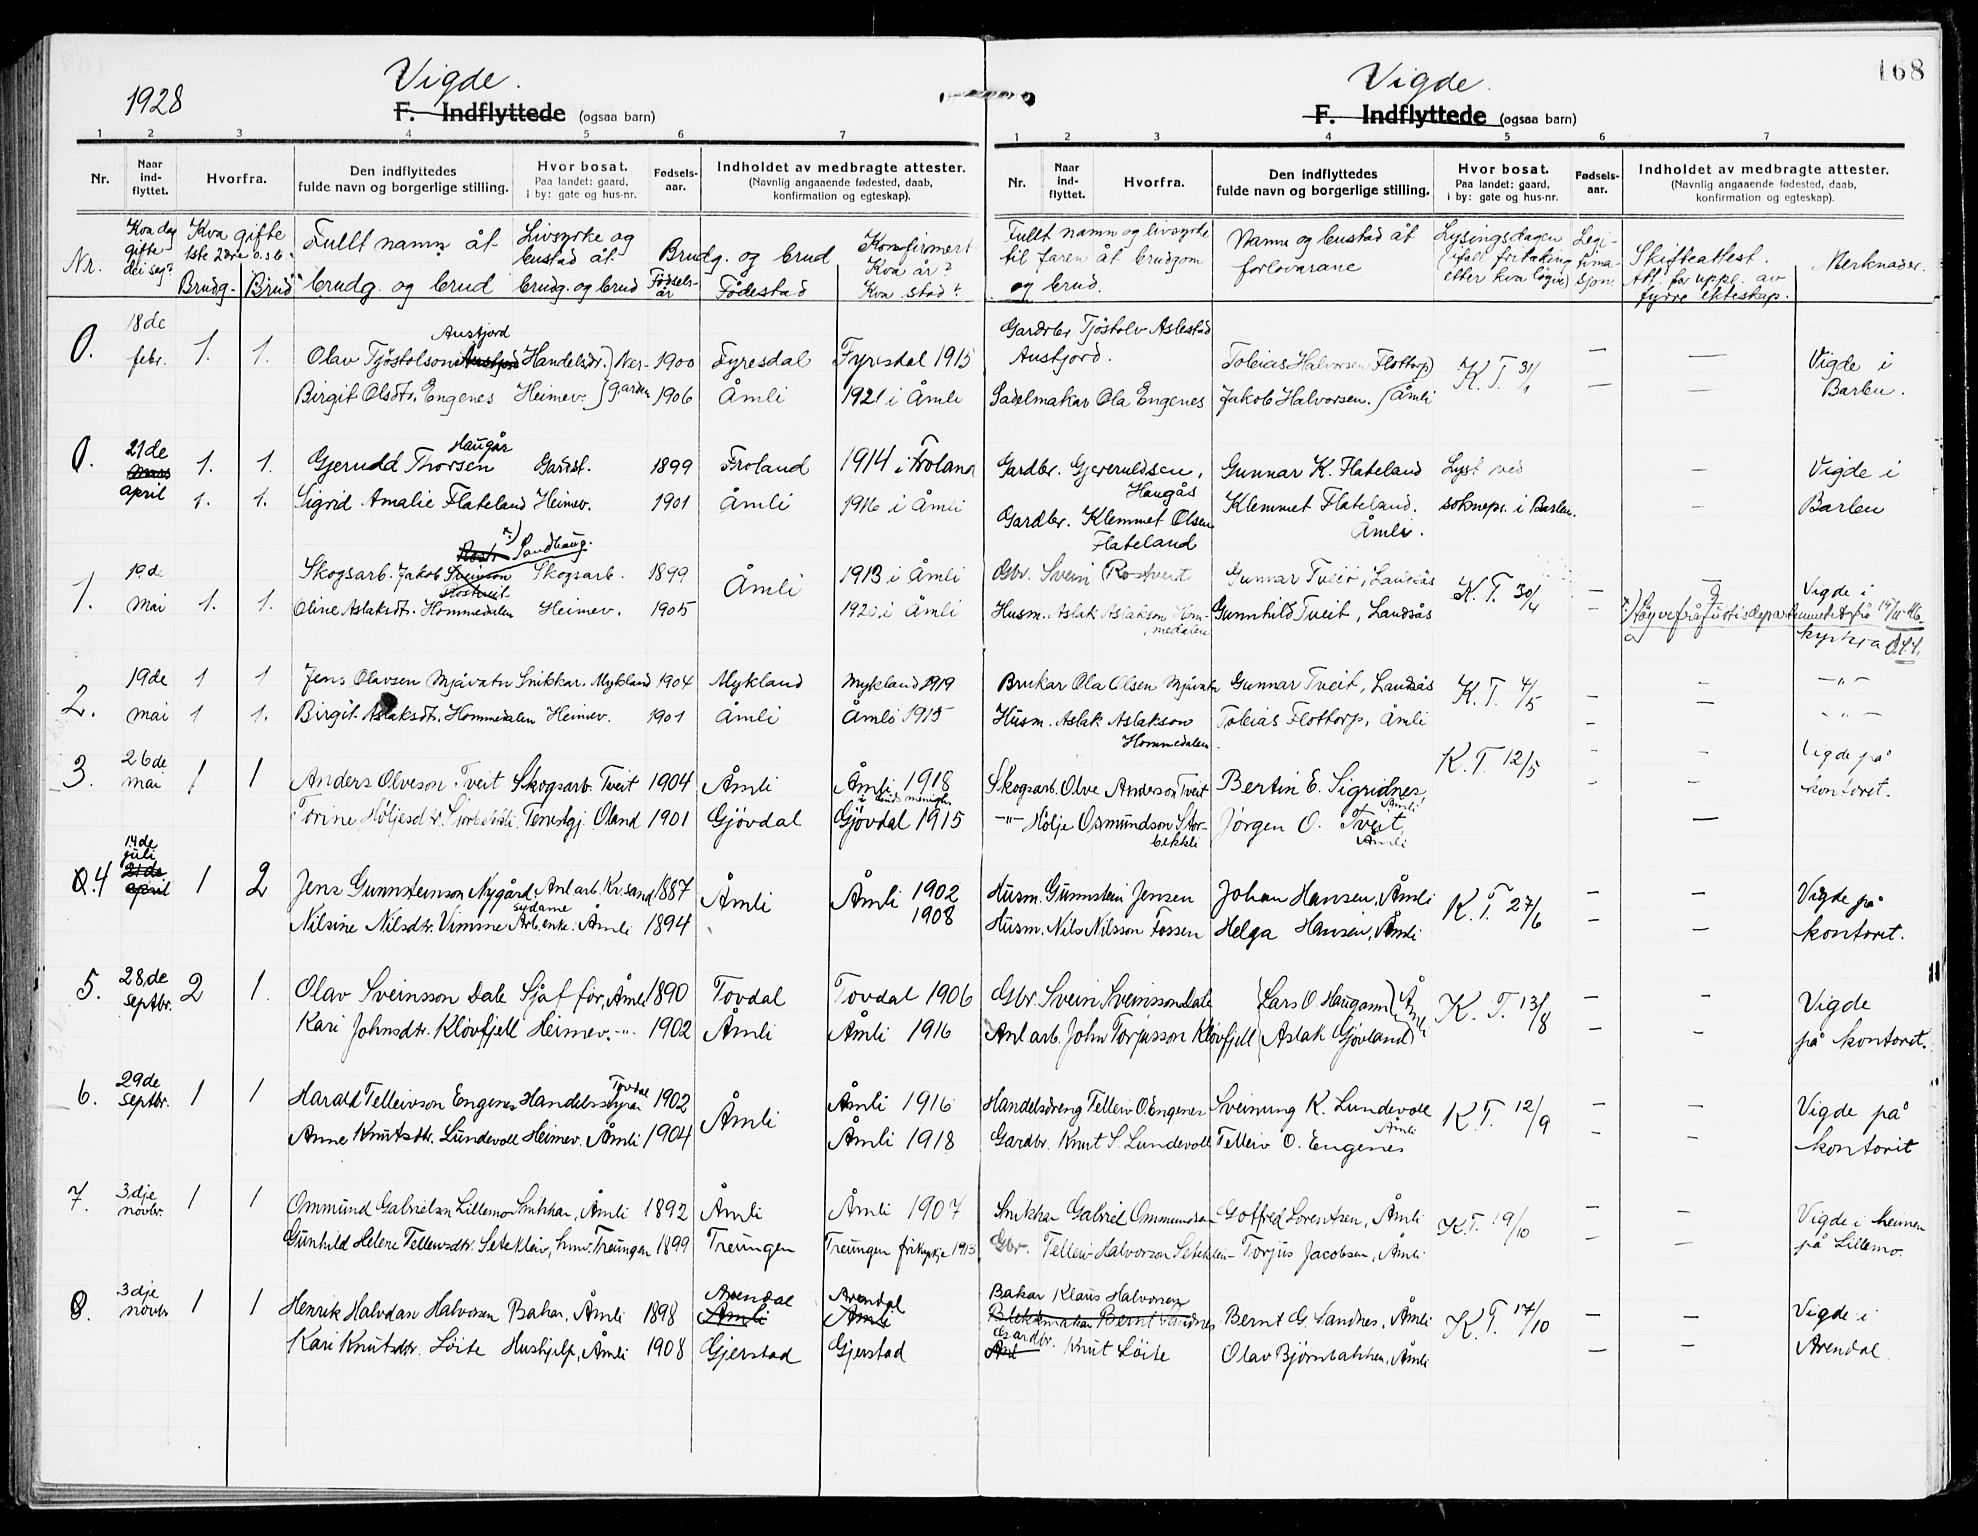 168
1928
Vigde.
F. Indflyttede (ogsaa barn)
1 2 3 4 5 6 7
Nr.
Naar ind-flyttet.
Hvorfra.
Den indflyttedes fulde navn og borgerlige stilling.
Hvor bosat.
Paa landet: gaard, i by: gate og hus-nr.
Fødsels-aar.
Indholdet av medbragte attester.
(Navnlig angaaende fødested, daab, konfirmation og egteskap).
Nr.
Kva dag gifte dei seg?
Kva gifte 1ste 2dre o.s.b.
Brudg- Brud
Fullt namn åt brudg. og brud
Livsyrke og bustad åt brudg. og brud
Brudg. og brud
Fødsels-år
Fødestad
Konfirmert Kva år? Kva stad?
0. 18de febr. 1. 1.
Austjord
Olav Tjøstolson Austjord Handelsdr. Ner- 1900 Fyresdal Fyresdal 1915
Birgit Olsdtr. Engenes Heimev. garden 1906 Åmli 1921 i Åmli
0. 21de mars april
Haugås
1. 1. Gjerudd Thorsen Gardst. 1899 Froland 1914 i Froland
1. 1. Sigrid Amalie Flateland Heimev. 1901 Åmli 1916 i Åmli
x) Sandhaug.
1. 19de mai
Skogsarb. Jakob Sveinson Skogsarb. 1899 Åmli 1913 i Åmli
1. 1. Oline Aslaksdtr. Hommedalen Heimev. 1905 1920 i Åmli
2. 19de mai
1 1 Jens Olavsen Mjåvatn Snikkar. Mykland 1904 Mykland Mykland 1919
1 1. Birgit Aslaksdt. Hommedalen Heimev. 1901 Åmli Åmli 1915
3. 26de mai 1 1
Anders Olveson Tveit Skogsarb. Tveit 1904 Åmli Åmli 1918
Torine Høljesdtr. Storbekkli Tenestgj. Oland 1901 Gjövdal Gjövdal 1915
0.4 14de juli 21de april 1 2
Jens Gunnsteinson Nygård Anl arb. Kr.sand 1887 Åmli Åmli 1902
Nilsine Nilsdtr. Vimme Arb. enke. Åmli 1894 1908
sydame
5. 28de septbr. 2 1.
Olav Sveinsson Dale Sjåfför, Åmli 1890 Tovdal Tovdal 1906
Kari Johnsdtr. Klövfjell Heimev. -"- 1902 Åmli Åmli 1916
6. 29de septbr. 1 1
Harald Telleivson Engenes Handelsstyrar Tovdal 1902 Åmli Åmli 1916
Anne Knutsdtr. Lundevoll Heimev. Åmli 1904 Åmli 1918
7. 3dje novbr. 1 1
Ommund Gabrielsen Lillemo Snikkar, Åmli 1892 Åmli Åmli 1907
Gunhild Helene Telleivsdtr. Setekleiv, hmv. Treungen 1899 Treungen Treungen frikyrkje 1913
8. 3dje novbr 1 1
Henrik Halvdan Halvorsen Bakar, Åmli 1898 Arendal Åmli Arendal Åmli
Kari Knutsdtr. Löite Hushjelp, Åmli 1908 Gjerstad Gjerstad
Vigde.
F. Indflyttede (ogsaa barn)
1 2 3 4 5 6 7
Nr.
Naar ind-flyttet.
Hvorfra.
Den indflyttedes fulde navn og borgerlige stilling.
Hvor bosat.
Paa landet: gaard, i by: gate og hus-nr.
Fødsels-aar.
Indholdet av medbragte attester.
(Navnlig angaaende fødested, daab, konfirmation og egteskap).
Fullt namn og livsyrke til faren åt brudgom og brud.
Namn og bustad åt forlovarane
Lysingsdagen (ifall fritaking etter kva løgje)
Legi-tima-sjon.
Skifteattest. Att. for uppl. av fyrre ekteskap.
Merknader.
Gardbr. Tjöstolv Aslestad Austjord. Tobias Halvorsen Flottorp K. T. 31/1 — — Vigde i
Sadelmakar Ola Engenes Jakob Halvorsen. Åmli — — Barlen.
Gardbr. Gjereruldsen, Haugås Gunnar K. Flateland Lyst ved — Vigde i
Gardbr. Klemmet Olsen Flateland Klemmet Flateland. Åmli. soknepr. i Barlen. — Barlen
Gbr. Svein Rostveit Gunnar Tveit, Landsås K. T. 30/4 — — Vigde i
Husm. Aslak Aslakson Hommedalen Gunnhild Tveit, Landsås — kyrkja
x) Løyve frå Justisdepartementet frå
Brukar Ola Olsen Mjåvatn Gunnar Tveit, Landsås K. T. 4/5 — — -"-
Husm. Aslak Aslakson Hommedalen. Tobias Flottorp, Åmli — — -"-
Skogsarb. Olve Anderson Tveit Bertin E. Sigridnes, Åmli K. T. 12/5 — — Vigde på
-"- Hölje Osmundson Storbekkli Jörgen O. Tveit, Åmli — — kontoret.
Husm. Gunnstein Jensen Johan Hansen, Åmli K. T. 27/6 — — Vigde på
Husm. Nils Nilsson Fossen Helga Hansen, Åmli — — kontoret.
Gbr. Svein Sveinsson Dale Lars O. Haugann Åmli K. T. 13/8 — — Vigde
Anl arb. John Torjusson Klövfjell Aslak Gjövland — — på kontoret.
Handelsdreng Telleiv O. Engenes Sveinung K. Lundevoll Åmli K. T. 12/9 — — Vigde på
Gardbr. Knut S. Lundevoll Telleiv O. Engenes — — kontorit
Snikkar Gabriel Ommundsen Gotfred Lorentzen, Åmli K. T. 19/10 — — Vigde i heimen
Gbr. Telleiv Halvorson Setekleiv Torjus Jacobsen, Åmli — — på Lillemo.
Bakar Klaus Halvorsen
Blekkmakar Bernt Sandnes Bernt G Sandnes, Åmli K. T. 17/10 — — Vigde i
Gardbr. Knut Löite Olav Bjørnbakken, Åmli — — Arendal.